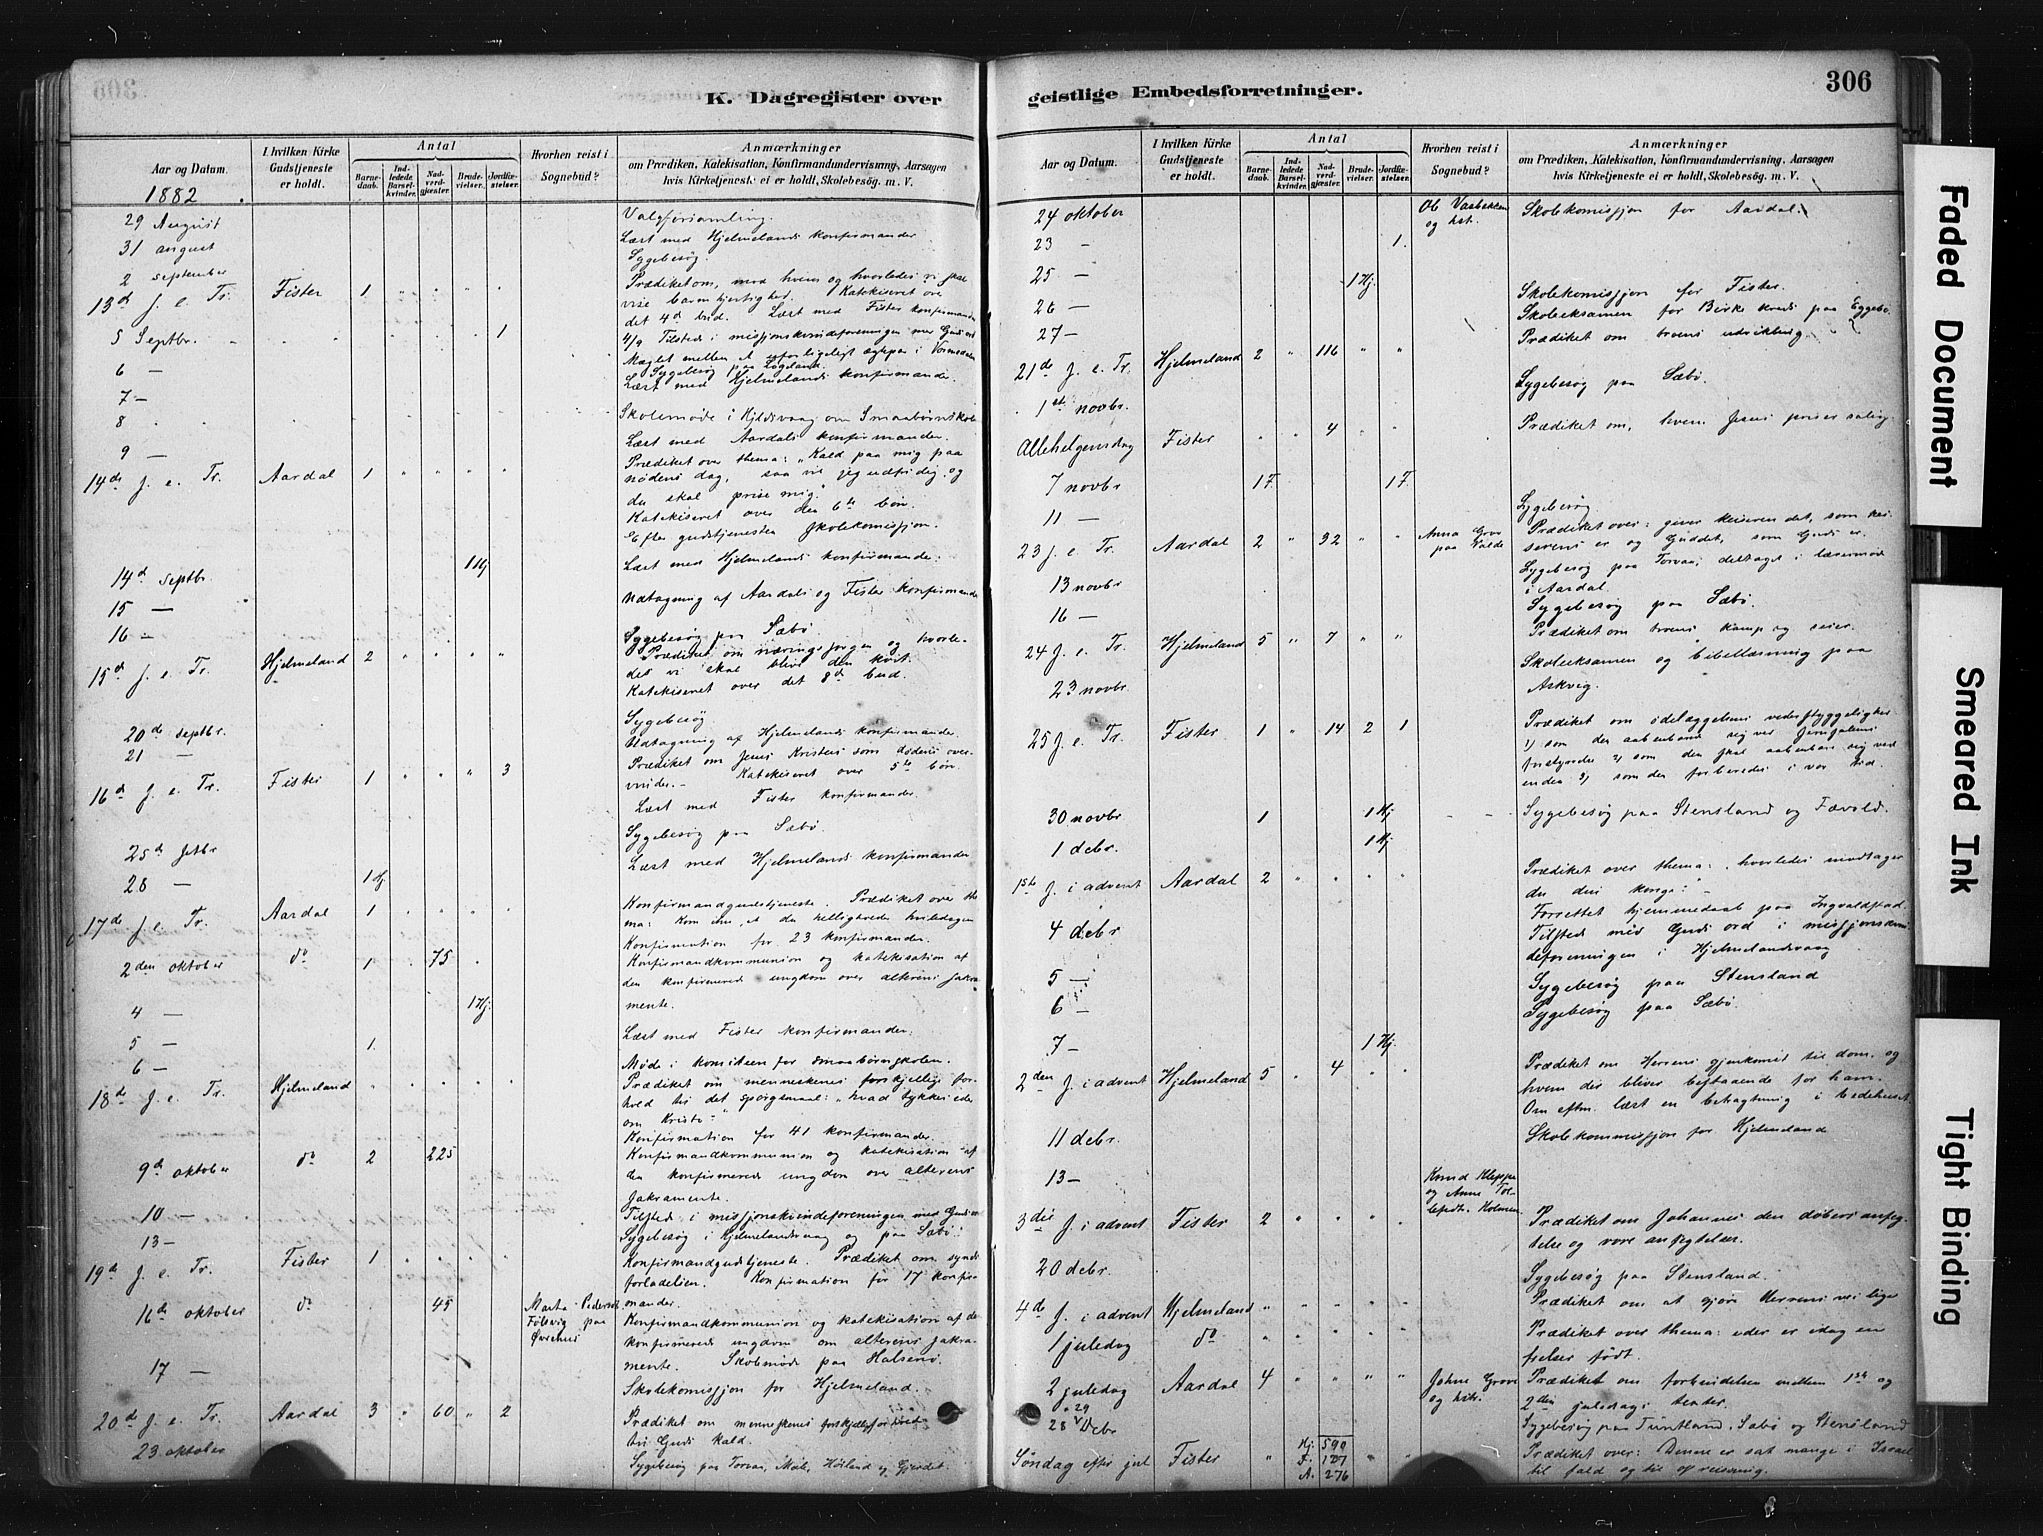 K. Dagregister over
Aar og Datum.
1882
I hvilken Kirke Gudstjeneste er holdt.
Antal
Barnedaab.
Indledede Barselkvinder.
Nadverdgjester.
Brudevielser.
Jordfæstelser.
Hvorhen reist i Sognebud?
Anmærkninger
om Prædiken, Katekisation, Konfirmandundervisning, Aarsagen
hvis Kirketjeneste ei er holdt, Skolebesøg. m. V.
29 August Valgforsamling.
31 august Læst med Hjelmelands konfirmander
2 september Sygebesøg.
13de s. e. Tr. Fister 1 Prædiket om, mod hvem og hvorledes vi skal
vise barmhjertighed. Katekiseret ove
det 4de bud. Læst med Fister konfirmande
5 Septbr. 1 4/9 Tilsted i misjonskvindeforeningen
6 — Mæglet mellem et
Sygebesøg paa
7 — Læst med Hjelmelands konfirmander.
8 Skolemøde i om Smaabørnsskole
9 — Læst med Aardals konfirmander.
14de s. e. Tr. Aardal 1 Prædiket over thema: „Kald paa mig paa
nødens dag, saa vil jeg udfri dig, og
du skal prise mig."
Katekiseret over den 6te bøn.
Efter gudstjenesten skolekomissjon.
14d septbr. 1 Hj Læst med Hjelmelands konfirmander.
15 — Udtagning af Aardals og Fister konfirmande
16 — Sygebesøg paa Sæbø.
15de s. e. Tr. Hjelmeland 2 Prædiket om næringssorgen og hvorle-
des vi skal blive den kvit.
Katekiseret over det 8de bud.
20de septbr. Sygebesøg
21 — Udtagning af Hjelmelands konfirmande.
16d s. e. Tr. Fister 1 3 Prædiket om Jesus Kristus som dødens over-
vinder.- Katekiseret over 5te bøn.
Læst med Fister konfirmander.
25d setbr Sygebesøg paa Sæbø
28 — 1 Hj. Læst med Hjelmelands konfirmander
17de s. e. Tr. Aardal 1 Konfirmandgudstjeneste. Prædiket over the
ma: Kom ihu, at du helligholde hviledagen
Konfirmation for 23 konfirmander.
2den oktober do 1 75 Konfirmandkommunion og katekisation af
den konfirmerede ungdom over alterens sakra
4 — 1 Hj. mente.
5 — 1. Læst med Fister konfirmander.
6 — Møde i komiteen for smaabørnskolen.
18de s. e. Tr. Hjelmeland Prædiket om menneskenes forskjellige for-
hold til det spørgsmaal: „hvad tykkes eder
om Kristo"
Konfirmation for 41 konfirmander
9de oktober do 2 225 Konfirmandkommunion og katekisation af
den konfirmerede ungdom over alterens
sakramente.
10 — Tilsted i misjonskvindeforeningen med Guds or
13 — Sygebesøg i Hjelmelandsvaag og paa Sæbø.
19de s. e. Tr. Fister 1 Konfirmandgudstjeneste. Prædiket om synds
forladelsen. Konfirmation for 17 konfir-
16de oktober do 45 Marta Pedersen mander.
paa Konfirmandkommunion og katekisation af de
konfirmerede ungdom om alterens sakra
mente. Skolemøde paa Halsenø.
17 — Skolekomissjon for Hjelmeland.
20de s. e. Tr. Aardal 3 60 2 Prædiket om menneskenes forskjellige forhold
til Guds kald.
23 oktober Sygebesøg paa Torvan, Mæle, Høiland og Gjerdet
geistlige Embedsforretninger.
306
Aar og Datum.
I hvilken Kirke Gudstjeneste er holdt.
Antal
Barnedaab.
Indledede Barselkvinder.
Nadverdgjester.
Brudevielser.
Jordfæstelser.
Hvorhen reist i Sognebud?
Anmærkninger
om Prædiken, Katekisation, Konfirmandundervisning. Aarsagen
hvis Kirketjeneste ei er holdt, Skolebesøg. m. V.
24 oktober Ob Vasbekken og hst. Skolekomissjon for Aardal.
23 — 1.
25 — 1 Hj.
26 — Skolekomissjon for Fister.
27 — Skoleeksamen for Birke kreds paa Eggebø.
21de s. e. Tr. Hjelmeland 2 116 Prædiket om troens udvikling.
1ste novbr. Sygebesøg paa Sæbø.
Allehelgensdag Fister 4 Prædiket om, hvem Jesus priser salig.
7 novbr 1 F. 1 F.
11 — Sygebesøg
23 s. e. Tr. Aardal 2 32 Anna Grov paa Valde Prædiket over: giver keiseren det, som kei-
serens er og Gud det, som Guds er.
13 novbr Sygebesøg paa Torvan; deltaget i læremøde
i Aardal.
16 — Sygebesøg paa Sæbø.
24 s. e. Tr. Hjelmeland 5 7 Prædiket om troens kamp og seier.
23 novbr. Skoleeksamen og bibellæsning paa
Askvig.
25 s. e. Tr. Fister 1 14 2 1 Prædiket om ødelæggelsens vederstyggelighed
1) som den aabenbarede sig ved Jerusalems
2) som den skal aabenbare sig ved
enden 3) som den forberedes i vor tid.
30 novbr 1 1 Hj Sygebesøg paa Stensland og Fævold.
1 debr. 1 Hj
1ste s. i advent Aardal 2 Prædiket over thema: „hvorledes modtager
du din konge?"
4 debr Forrettet hjemmedaab paa Ingvaldstad
Tilsted med Guds ord i missjonskvin
deforeningen i Hjelmelandsvaag
5 — Sygebesøg paa Stensland
6 — Sygebesøg paa Sæbø.
7 — 1 Hj.
2den s. i advent Hjelmeland 5 4 Prædiket om Herrens gjenkomst til dom, og
hvem der bliver bestaaende for ham.
Om eftm. læst en betragtning i bedehuset.
11 debr. Skolekommissjon for Hjelmeland
13 — Knud Kleppe og Anne Holmen.
3die s. i advent Fister 2 Prædiket om Johannes den døbers anfeg-
telse og vore anfegtelser.
20 debr. Sygebesøg paa Stensland.
4de s. i advent Hjelmeland Prædiket om at gjøre Herrens vei lige
1 juledag do Prædiket over thema: eder er idag en
frelser født.
2 juledag Aardal 4 Johne Grove og hst. Prædiket om forbindelsen mellem 1ste og
2den juledags texter.
28 og 29 Debr Sygebesøg paa Tuntland, Sæbø og Stensland
Søndag efter jul Fister Hj. 590 F. 127 A. 276 Prædiket over: Denne er sat mange i Israel
til fald og til opreisning.
Faded Document
Smeared Ink
Tight Binding